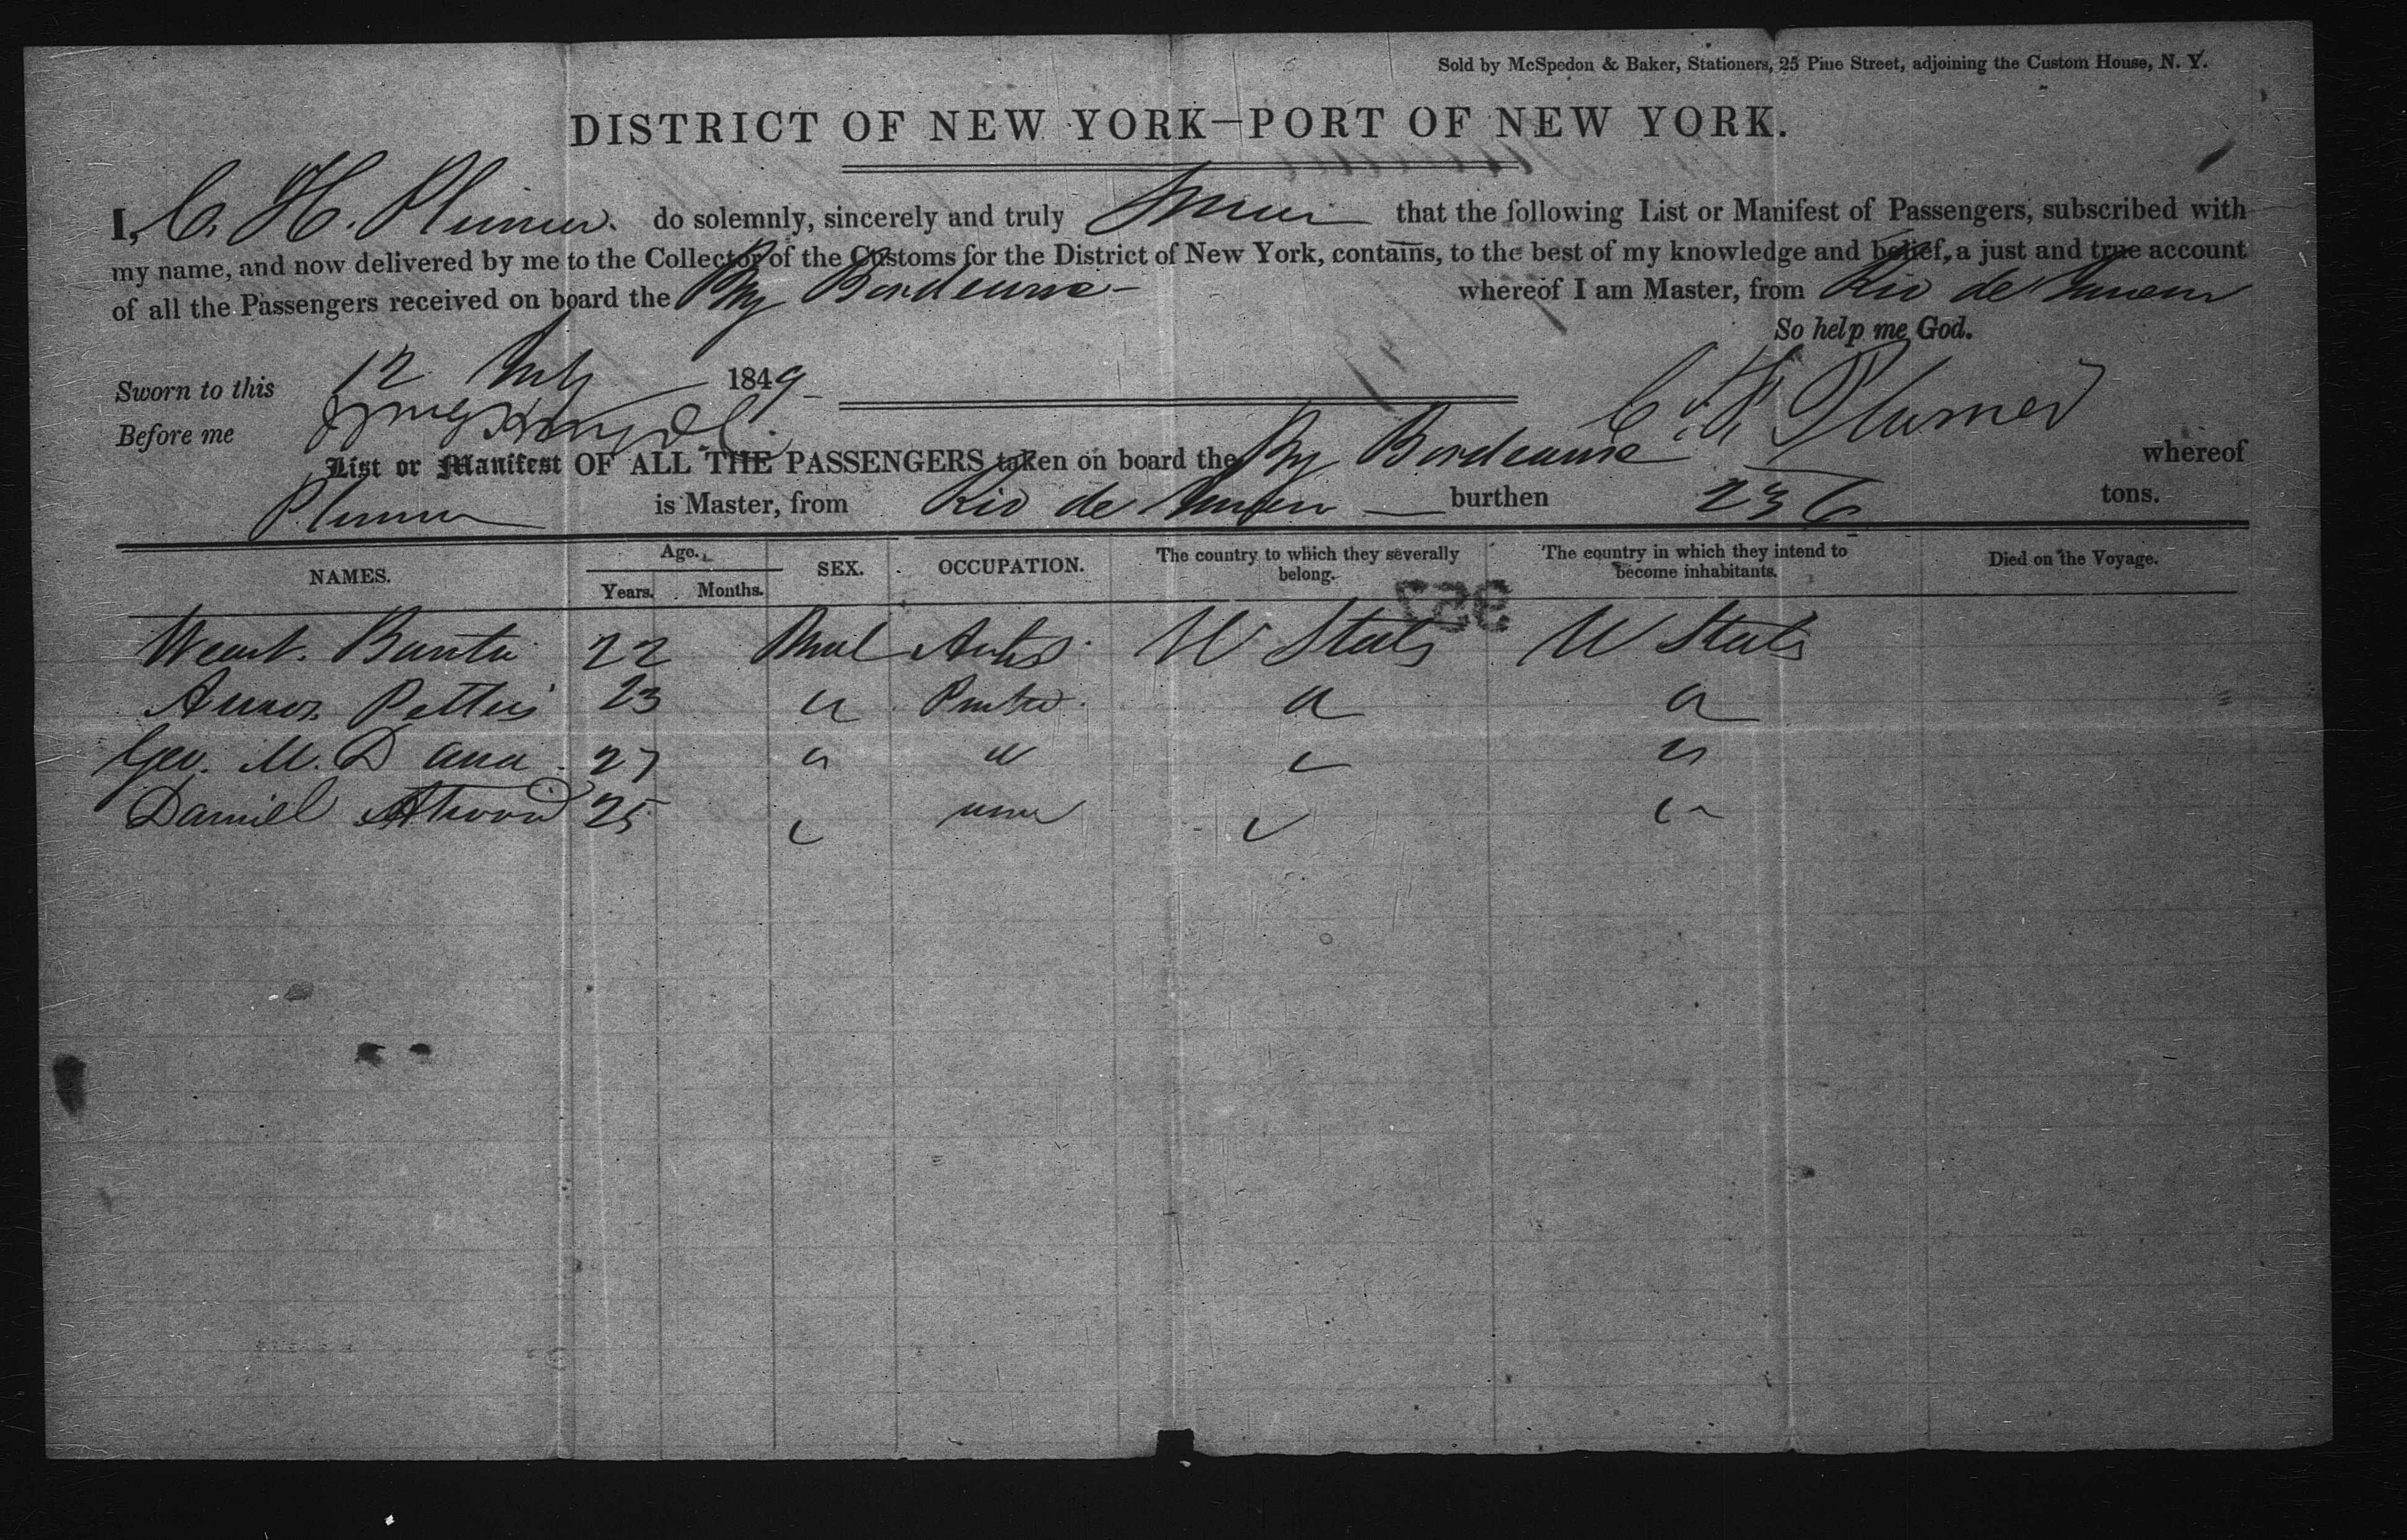 Sold by McSpedon & Baker, Stationers, 25 Pine Street, adjoining the Custom House, N. Y.
DISTRICT OF NEW YORK—PORT OF NEW YORK.
I, C. H. Plumer. do solemnly, sincerely and truly Swear that the following List or Manifest of Passengers, subscribed with
my name, and now delivered by me to the Collector of the Customs for the District of New York, contains, to the best of my knowledge and belief, a just and true account
of all the Passengers received on board the Brig Bordeaux whereof I am Master, from Rio de Janeiro
So help me God.
Sworn to this 12 July 1849
Before me C. H. Plumer
List or Manifest OF ALL THE PASSENGERS taken on board the Brig Bordeaux whereof
Plumer is Master, from Rio de Janeiro burthen 236 tons.
NAMES. Age. Years. Months. SEX. OCCUPATION. The country to which they severally belong. The country in which they intend to become inhabitants. Died on the Voyage.
957
Banta 22 Male U States U States
Pettis 23 " " "
Geo. M. Dana 27 " " " "
Daniel Atwood 25 " none " "